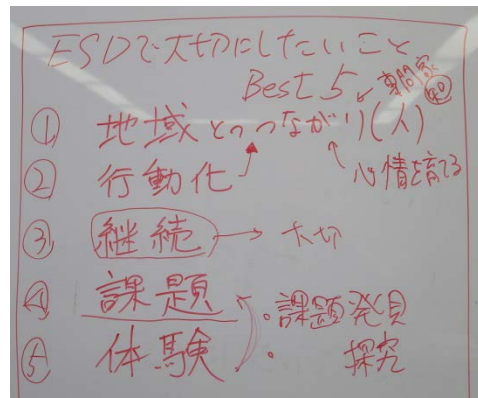 ESDで大切にしたいこと
Best 5 専門家 知
① 地域とのつながり(人)
② 行動化 心情を育てる
③ 継続 → 大切
④ 課題 ・課題発見
⑤ 体験 ・ 探究